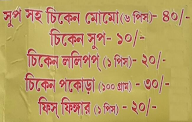 সুপ সহ চিকেন মোমো(৬ পিস)- ৪০/-
চিকেন সুপ- ১০/-
চিকেন ললিপপ (১ পিস)- ২০/-
চিকেন পকোড়া (১০০ গ্রাম) - ৩০/-
ফিস্ ফিঙ্গার (১ পিস)- ২০/-